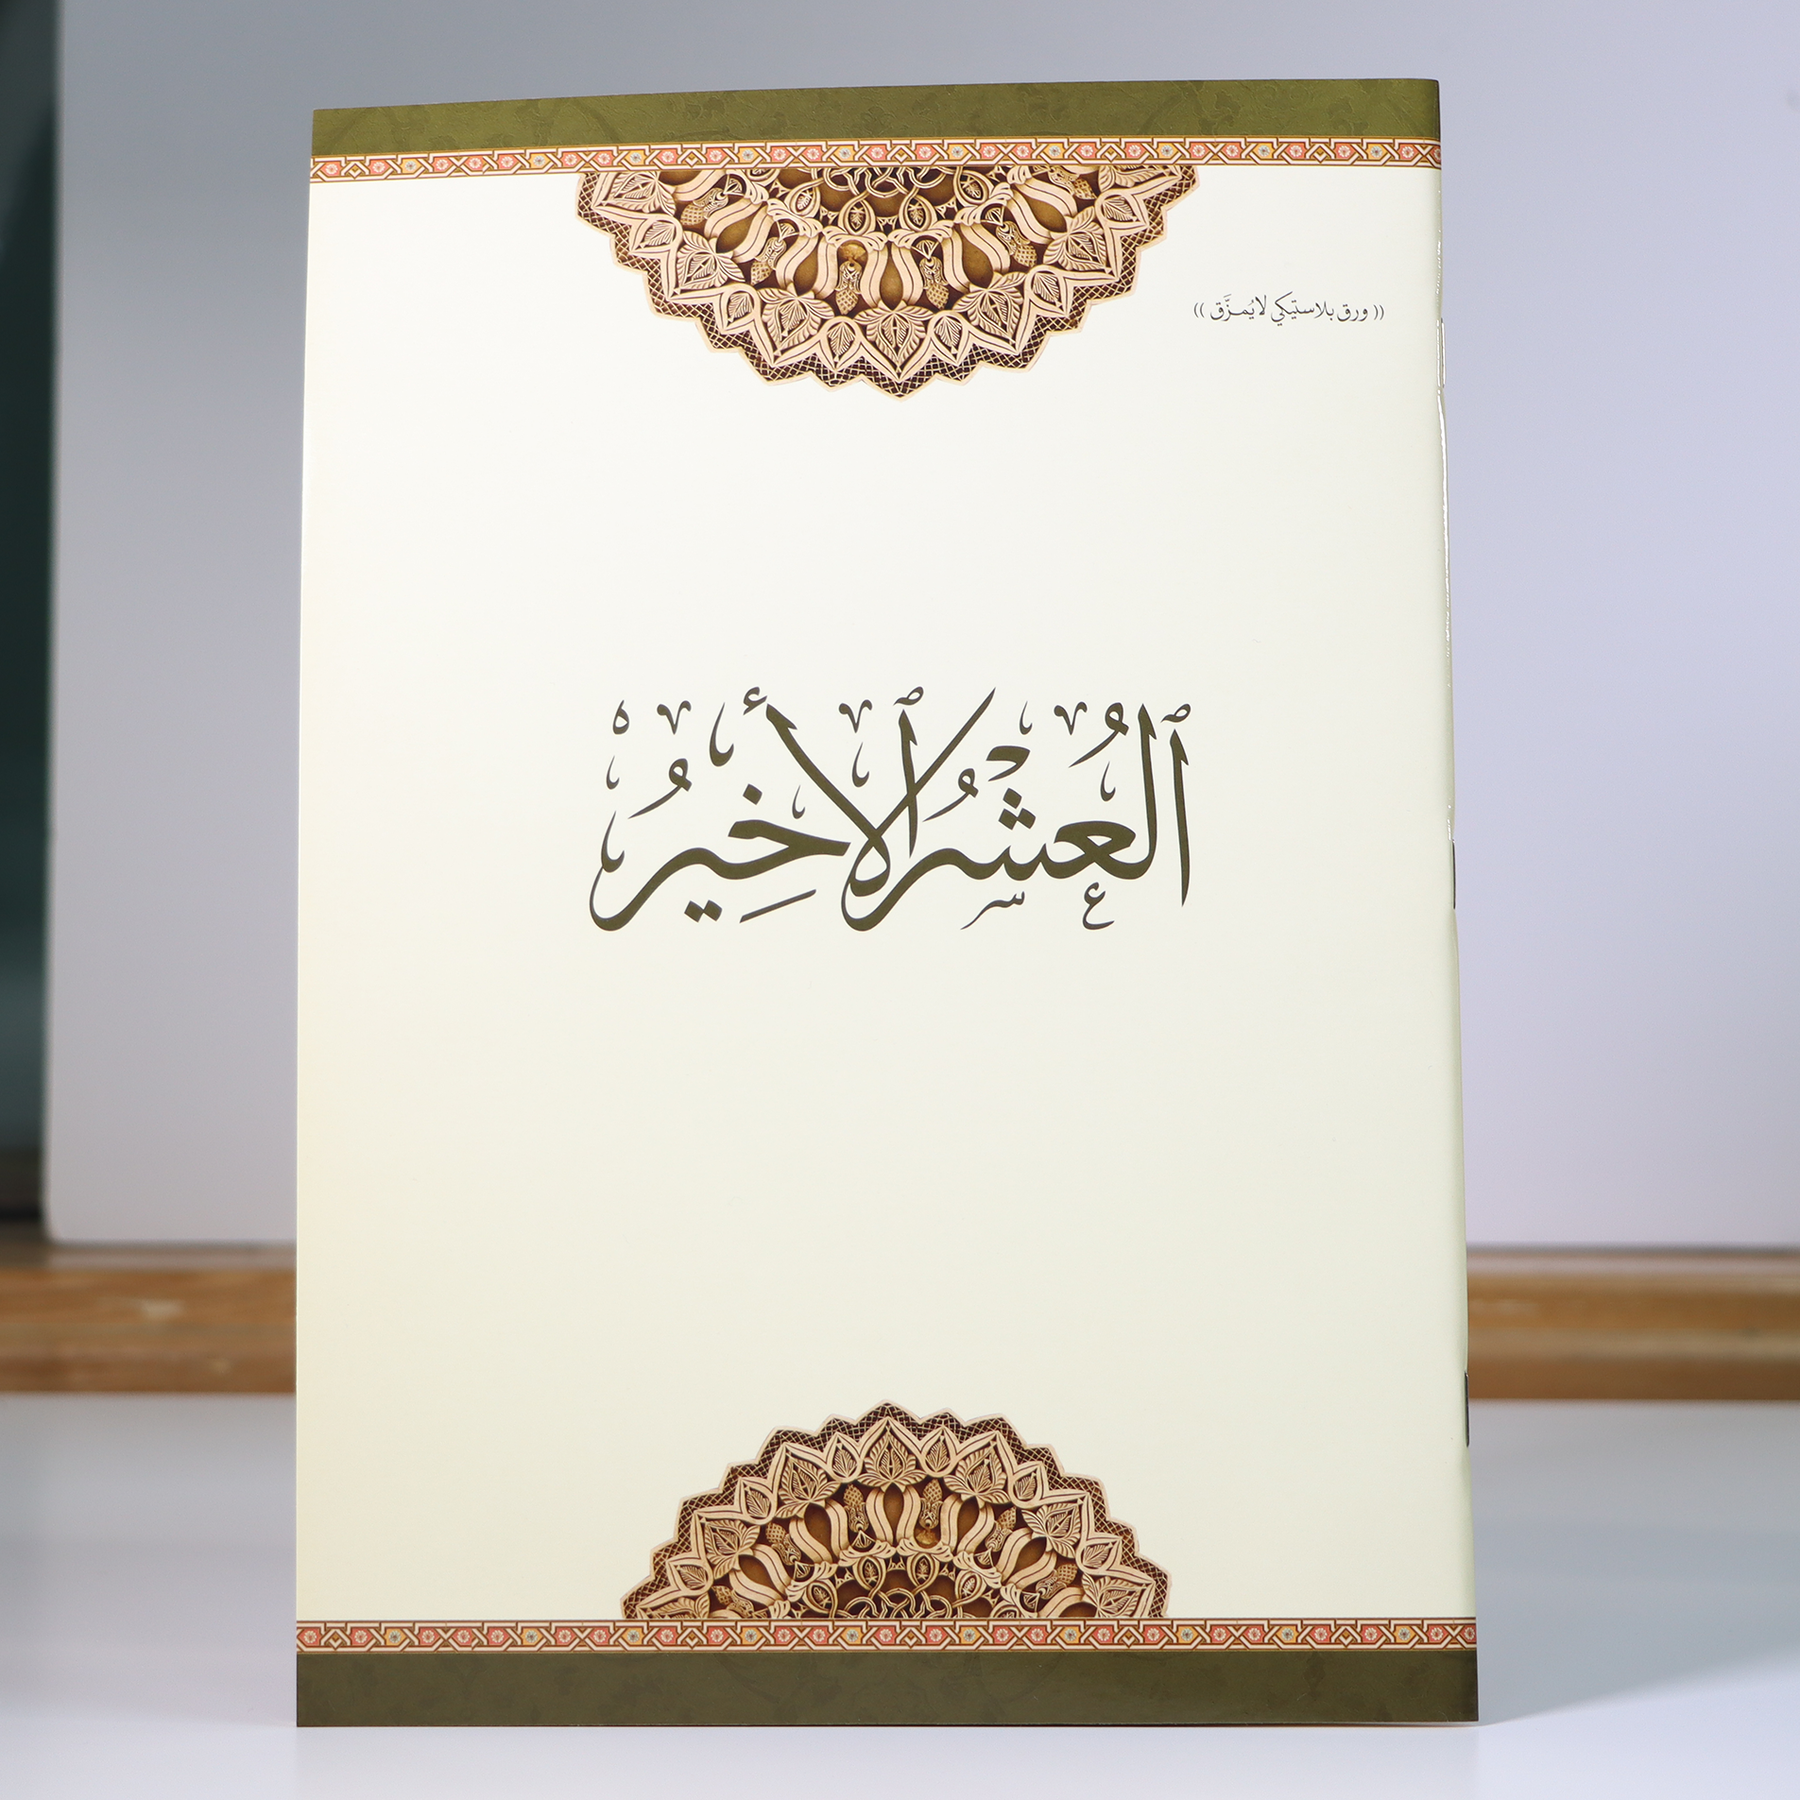 (( ورق بلاستيكي لا يُمزَّق ))
ٱلْعُشْرُ ٱلْأَخِيرُ